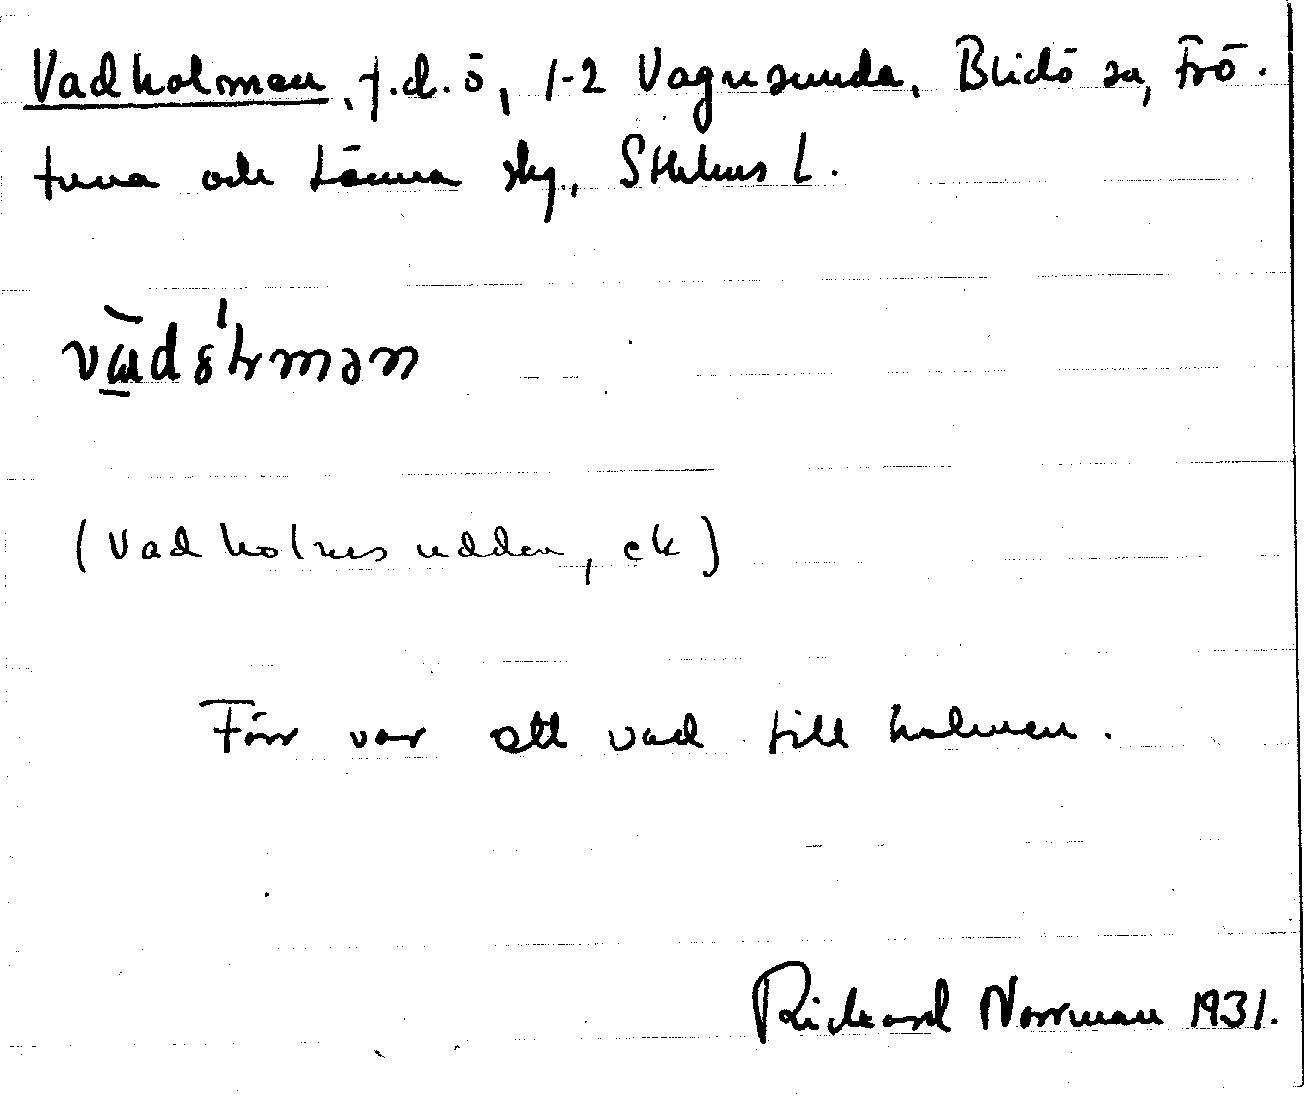 Vadholmen, f.d. ö, 1-2 Vagnsunda, Blidö sn, Frö-
tuna och Länna skg., Sthlms l.
(Vadholmsudden, ek)
Förr var ett vad till holmen.
Rickard Norrman 1931.